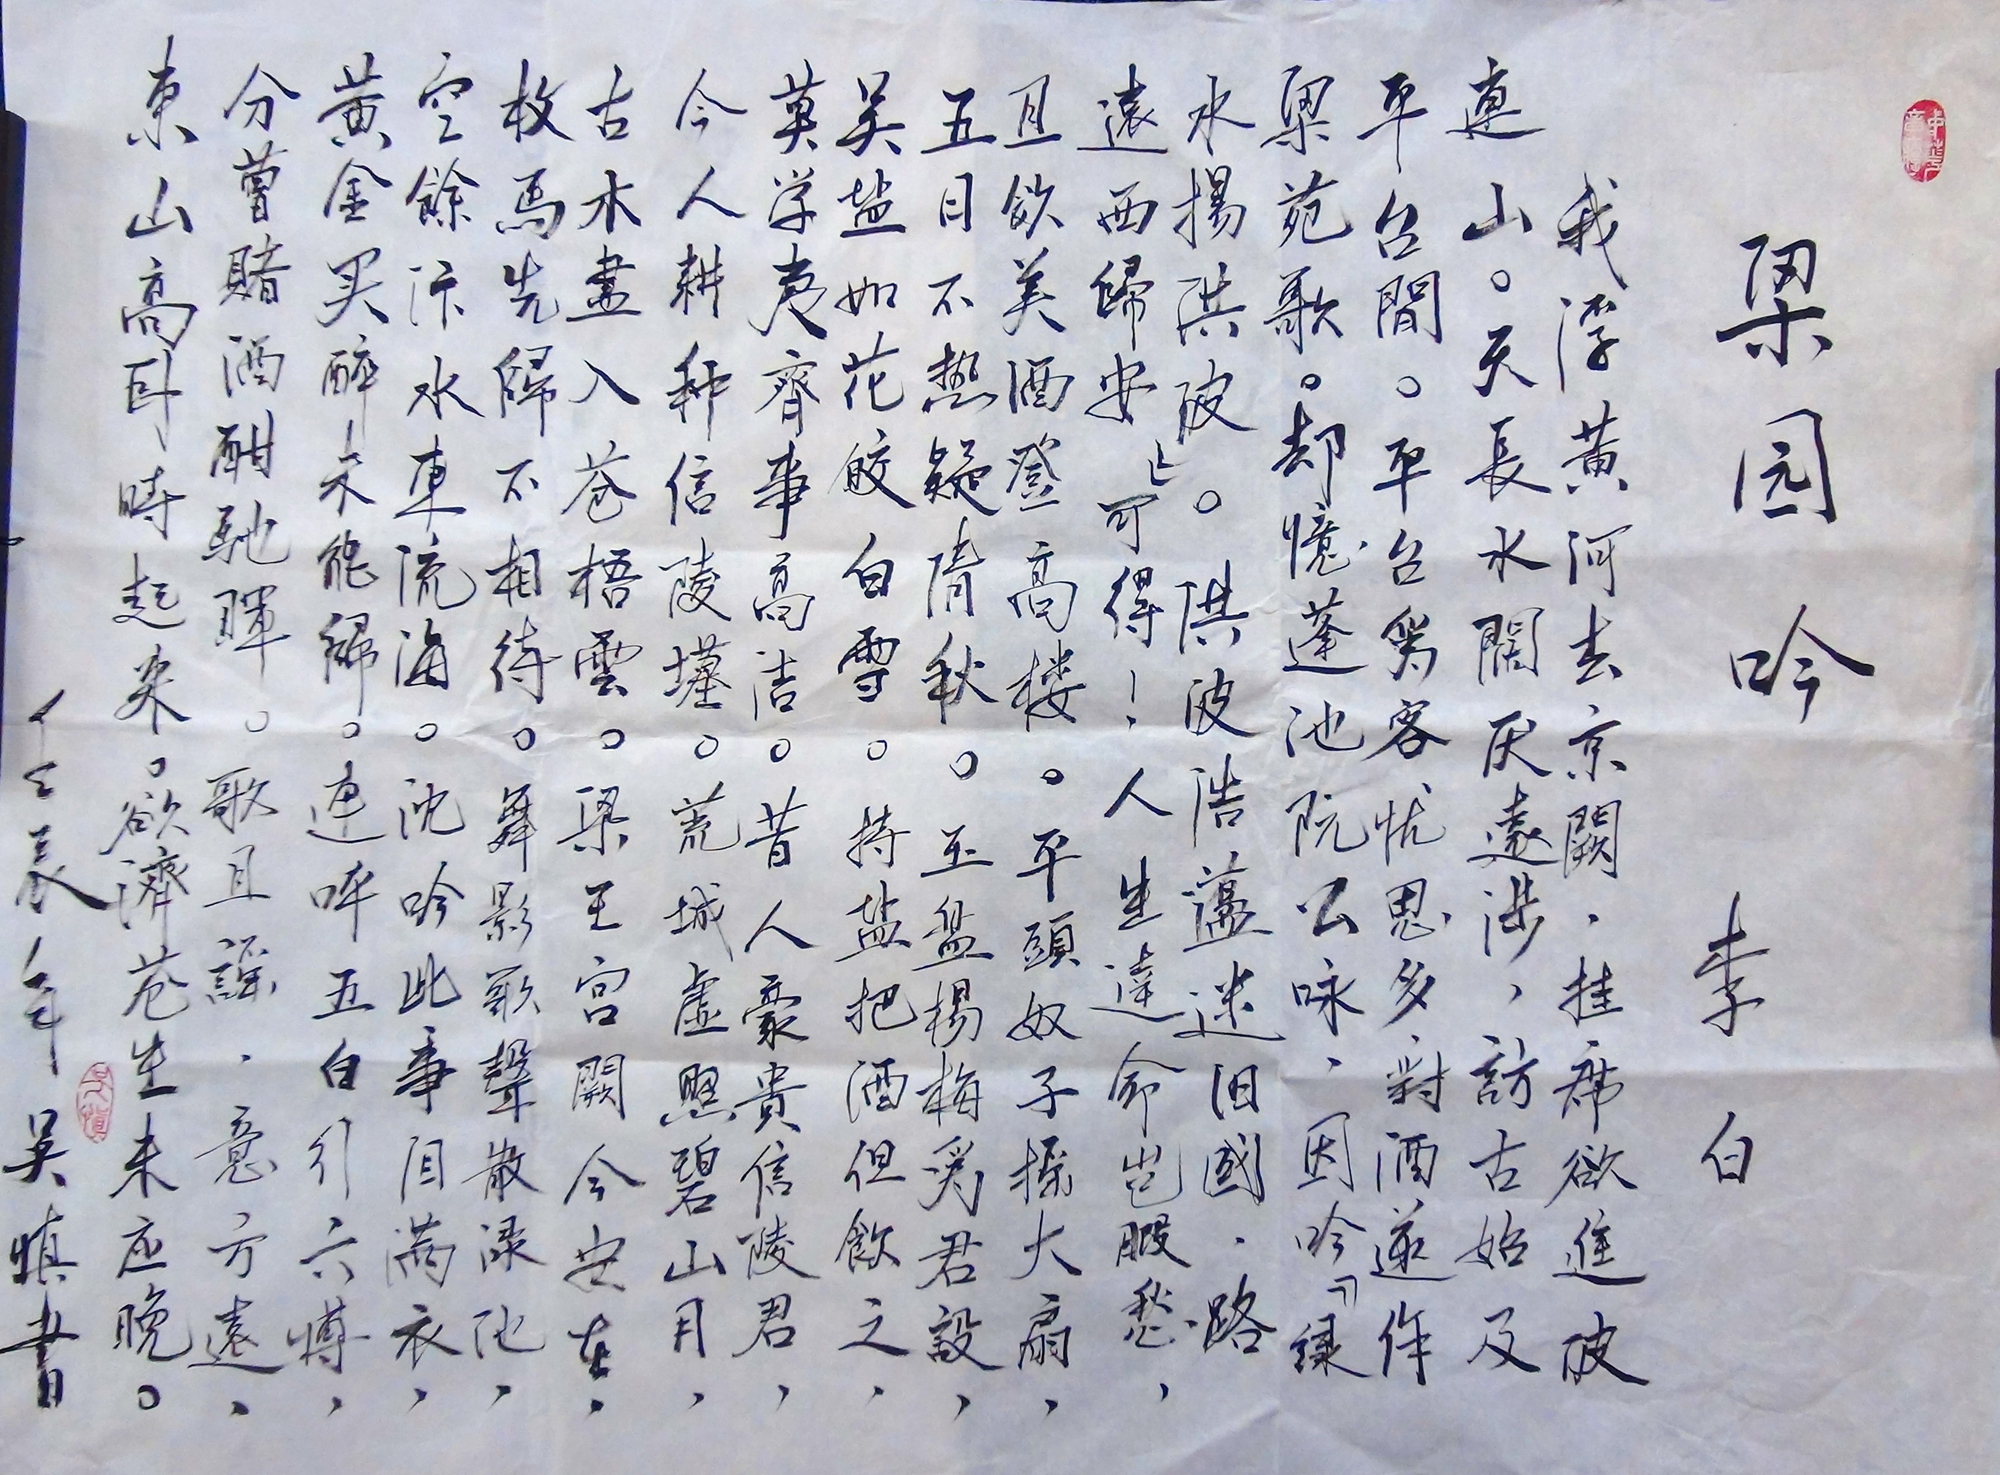 梁园吟 李白
我浮黄河去京闕，挂席欲進波
連山。天長水闊厌遠涉，訪古始及
平台間。平台為客忧思多，對酒遂作
梁苑歌。却憶蓬池阮公咏，因吟「緑
水揚洪波」。洪波浩蕩迷旧國，路
遠西歸安可得！人生達命岂暇愁，
且飲美酒登高楼。平頭奴子摇大扇，
五日不热疑清秋。玉盤楊梅為君設，
吴盐如花皎白雪。持盐把酒但飲之，
莫学夷齊事高洁。昔人豪貴信陵君，
今人耕种信陵墳。荒城虚照碧山月，
古木盡入苍梧雲。梁王宫闕今安在，
枚馬先歸不相待。舞影歌聲散渌池，
空餘汴水東流海。沈吟此事泪满衣，
黄金买醉未能歸。連呼五白引六博，
分曹賭酒酣馳暉。歌且謡，意方遠，
東山高卧時起来。欲濟苍生未应晚。
壬辰年 吴慎書